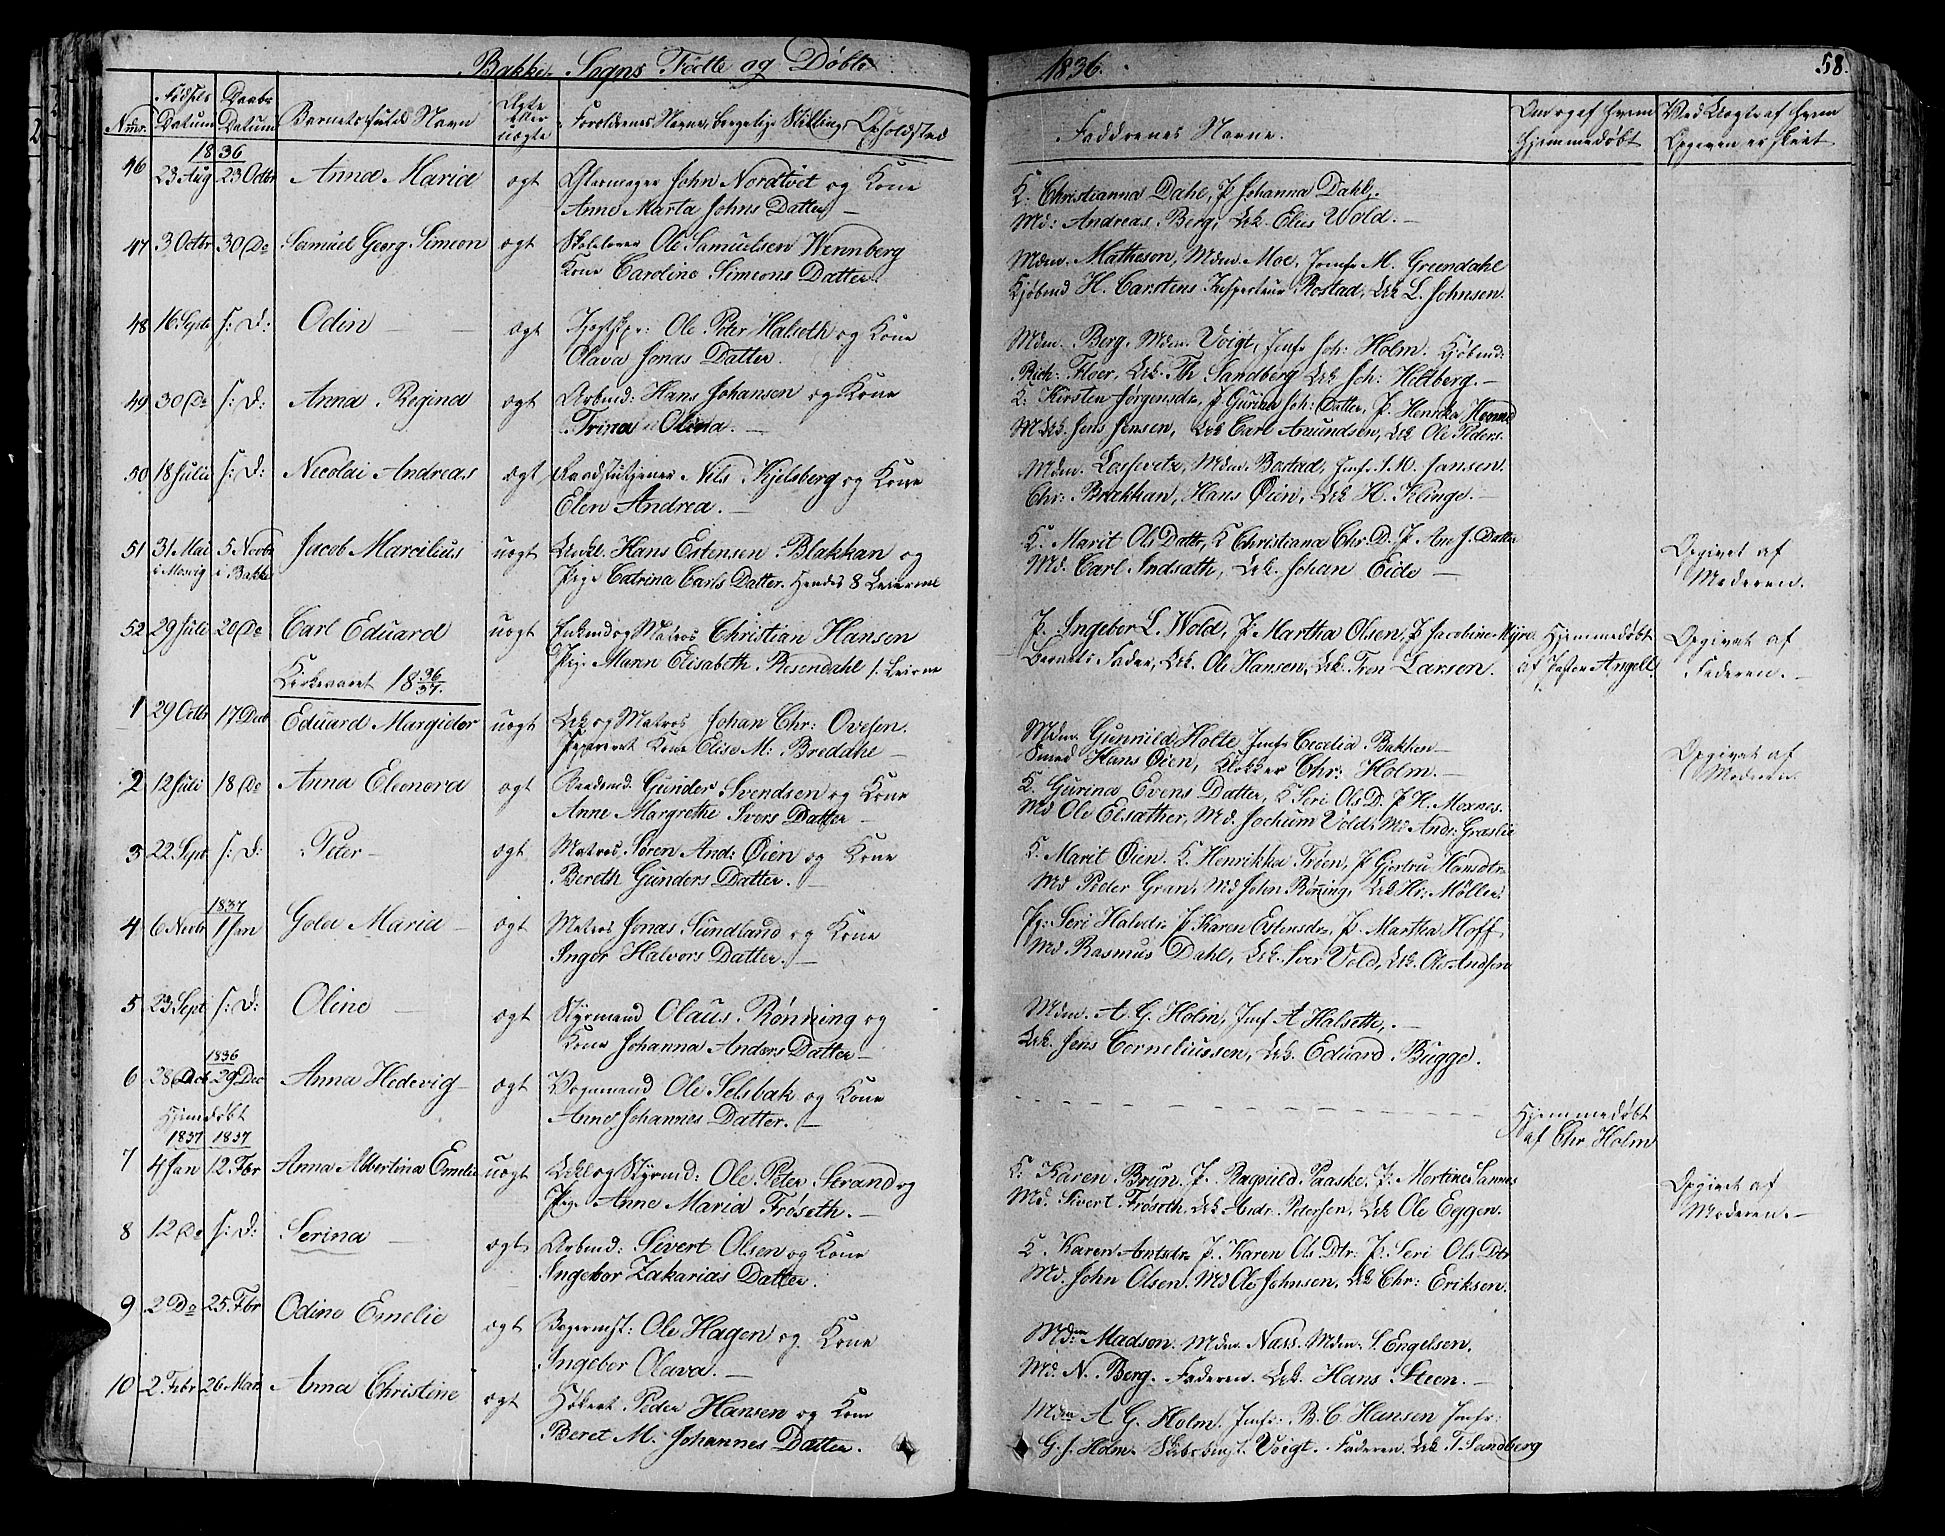 Bakke Sogns Fødte og Døbte 1836. 58.
Numr. Fødsels Datum Daabs Datum Barnets fulde Navn Ægte eller uægte Forældrenes Navne, borgelige Stilling, Opholdsted Faddrenes Navne. Om og af hvem Hjemmedøbt Ved Uægte af hvem Opgiven er skeet
1836
46 23 Aug 23 Octbr Anna Maria ægt Glarmager John Nordtvet og Kone
Anne Marta Johns Datter —
K. Christianna Dahl, P Johanna Dahl,
Md: Andreas Berg, Uck Elias Wold. —
47 3 Octbr 30 Do Samuel Georg Simeon ægt Skolelærer Ole Samuelsen Wennberg
Kone Caroline Simeons Datter.
Mdm. Matheson, Mdm. Moe, Jomfr M. Greendahl
Kjøbmd H. Carstens Inspecteur Rostad, Uck L. Johnsen.
48 16 Septb s: D: Odin — ægt Ole Peter Halseth og Kone
Olava Jonas Datter.
Mdm. Berg. Mdm. Voigt, Jmfr Joh: Holm. Kjøbmd:
Rich: Floer, Uck. Th Sandberg Uck Joh: Holtberg. —
49 30 Do s: D: Anna Regina ægt Arbmd: Hans Johansen og Kone
Trina Olina. —
K. Kirsten Jørgensdr, P Gurina Joh: Datter, P. Henrika
Jens Jensen, Uck Carl Amundsen, Uck Ole Peders.
50 18 Julii s: D: Necolai Andreas ægt Raadstutjener Nils Kjelsberg og Kone
Elen Andrea. —
Mdm. Mdm. Bostad, Jmfr I. M. Jansen.
Chr: Brækkan, Hans Øien, Uck H. Klinge. —
51 31 Mai 5 Novbr Jacob Marcilius uægt Uckl. Hans Estensen Blakkan og
i Bakke Pige Catrina Carls Datter. Hendes 8 Leiermal
K. Marit Ols Datter, K Christiana Chr. D. P Ane J. Datter
Md. Carl Indsath, Uck. Johan Eide —
Opgivet af
Moderen.
52 29 Juli 20 Do Carl Eduard uægt Enkemd og Matros Christian Hansen
Pige Maren Elisabeth Rosendahl 1. Leierm
P. Ingebor L. Wold, P. Martha Olsen, P Jacobine Myre
Barnets Fader, Uck. Ole Hansen, Uck. Tron Larsen.
Hjemmedøbt
af Pastor Angell.
Opgivet af
Faderen. —
Kirkeaaret 18 36/37.
1 29 Octbr 17 Decb Eduard Margider uægt Uck og Matros Johan Chr: Ovesen.
Separeret Kone Elise M: Bredahl —
Mdm. Gunnild Holte Jmfr Cecelia Bakken —
Smed Hans Øien, Klokker Chr: Holm. —
Opgivet af
Moderen.
2 12 Juli 18 Do Anna Eleonora ægt Gunder Svendsen og Kone
Anne Margrethe Ivers Datter —
K. Gurina Evens Datter, K Seri Ols D. P. H. Moxnes.
Md Ole Elsæther, Md. Jochum Vold, Md Andr. Græslie
3 22 Sept s: D: Peter — ægt Matros Søren And: Øien og Kone
Bereth Gunders Datter. —
K. Marit Øien. K. Henrikka Trøen, P Gjertru Hansdtr.
Md Peder Gran, Md John Rønning, Uck Hr: Møller.
1837
4 6 Novbr 1 Jan Golea Maria — ægt Matros Jonas Sundland og Kone
Inger Halvors Datter. —
Pg: Seri Halvdr. P Karen Estensdr, P. Martha Hoff
Md Rasmus Dahl, Uck. Iver Vold, Uck. Ole Andsen
5 23 Sept s: D: Oline — ægt Styrmand Olaus Rønning og
Kone Johanna Anders Datter —
Mdm. A. G. Holm, Jmf A Halseth, —
Uck. Jens Corneliussen, Uck. Eduard Bugge.
1836
6 28 Dec 29 Dec Anna Hedevig — ægt Vognmand Ole Selsbak og Kone
Hjemdøbt Anne Johannes Datter. —
Hjemmedøbt
af Chr. Holm
1837 1837
7 4 Jan 12 Fbr Anna Albertina Emelie uægt Uckl og Styrmd: Ole Peter Strand og
Pige Anne Maria Frøseth. —
K. Karen Brun, P. Ragnild Paaske. P: Mortine Sannes
Md. Sivert Frøseth, Uck Andr. Petersen, Uck Ole Eggen.
Opgivet af
Moderen. —
8 12 Do s: D: Serina — ægt Arbmd: Sivert Olsen og Kone
Ingebor Zakarias Datter.
K. Karen Antsdr P. Karen Ols Dtr: P. Seri Ols Dtr
Md. John Olsen. Md Ole Johnsen, Uck Chr: Eriksen.
9 2 Do 25 Fbr Odine Emelie ægt Bagermst: Ole Hagen og Kone
Ingebor Olava. —
Mdm Madson. Mdm. Næss. Mdm. S Engelsen.
Md. N. Berg. Faderen. Uck. Hans Steen. —
10 2 Febr 26 Mar Anna Christine ægt Høkert Peder Hansen og Kone
Beret M. Johannes Datter.
Mdm A G. Holm, Jmfr: B. C. Hansen Jmfr:
G. J. Holm Skibsbmst. Voigt. Faderen. Uck T. Sandberg